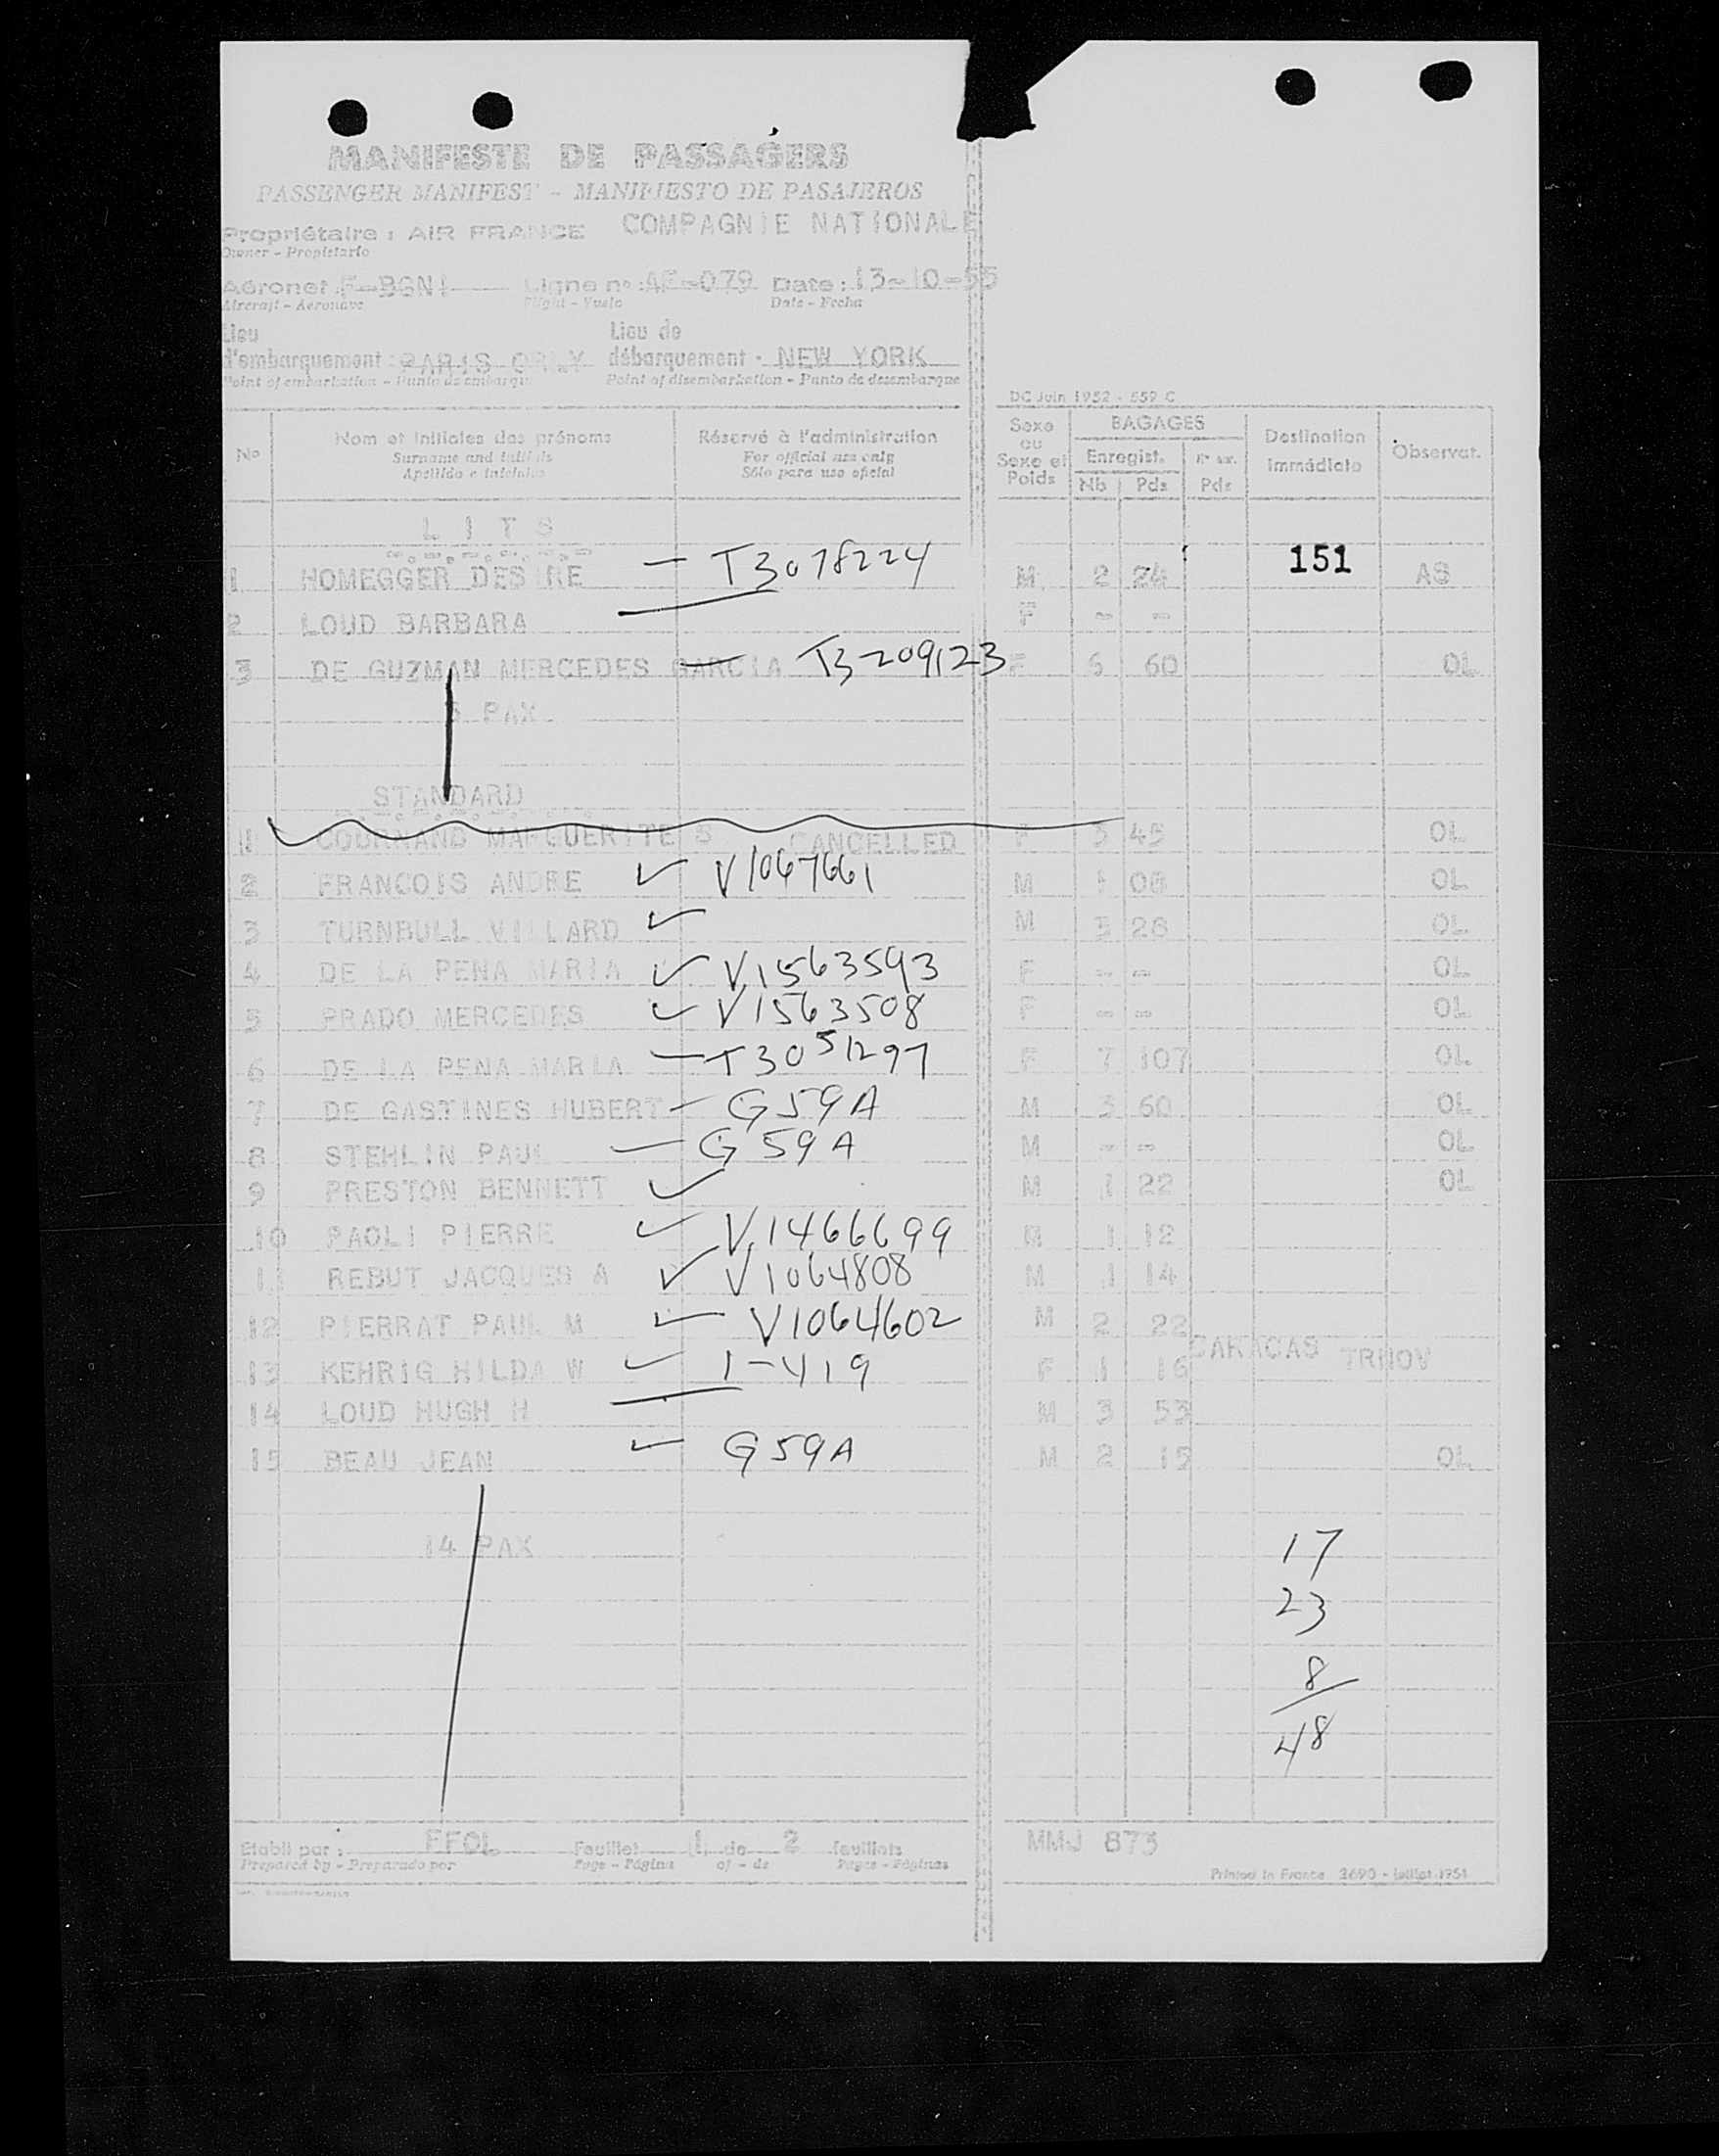 MANIFESTE DE PASSAGERS
PASSENGER MANIFEST - MANIFIESTO DE PASAJEROS
Propriétaire : AIR FRANCE COMPAGNIE NATIONALE
Owner - Propietario
Aéronef F-BGNI Ligne n° : AF-079 Date : 13-10-55
Aircraft - Aeronave Flight - Vuelo Date - Fecha
Lieu d'embarquement : PARIS ORLY Lieu de débarquement : NEW YORK
Point of embarkation - Punto de embarque Point of disembarkation - Punto de desembarque
DC Juin 1952 - 659 C
No Nom et initiales des prénoms Réservé à l'administration Sexe ou Sexe et Poids BAGAGES Destination immédiate Observat.
Surname and initials For official use only Enregist.
Apellido e iniciales Sólo para uso oficial Nb Pds Pds
LITS
1 HOMEGGER DESIRE — T3078224 M 2 24 151 AS
2 LOUD BARBARA F - -
3 DE GUZMAN MERCEDES GARCIA T3209123 F 6 60 OL
3 PAX
STANDARD
1 COURNAND MARGUERITE S CANCELLED F 3 45 OL
2 FRANCOIS ANDRE ✓ V1067661 M 1 08 OL
3 TURNBULL VILLARD ✓ M 3 28 OL
4 DE LA PENA MARIA ✓ V1563593 F - - OL
5 PRADO MERCEDES ✓ V1563508 F - - OL
6 DE LA PENA MARIA — T3051297 F 7 107 OL
7 DE GASTINES HUBERT - G59A M 3 60 OL
8 STEHLIN PAUL — G59A M - - OL
9 PRESTON BENNETT ✓ M 1 22 OL
10 PAOLI PIERRE ✓ V1466699 M 1 12
11 REBUT JACQUES A ✓ V1064808 M 1 14
12 PIERRAT PAUL M ✓ V1064602 M 2 22
13 KEHRIG HILDA W ✓ 1-419 F 1 16 CARACAS TRNOV
14 LOUD HUGH H M 3 53
15 BEAU JEAN ✓ G59A M 2 15 OL
14 PAX
17
23
8
48
Etabli par : FFOL Feuillet 1 de 2 feuillets MMJ 873
Prepared by - Preparado por Page - Página of - de Pages - Páginas
Printed in France 2690 - juillet 1951